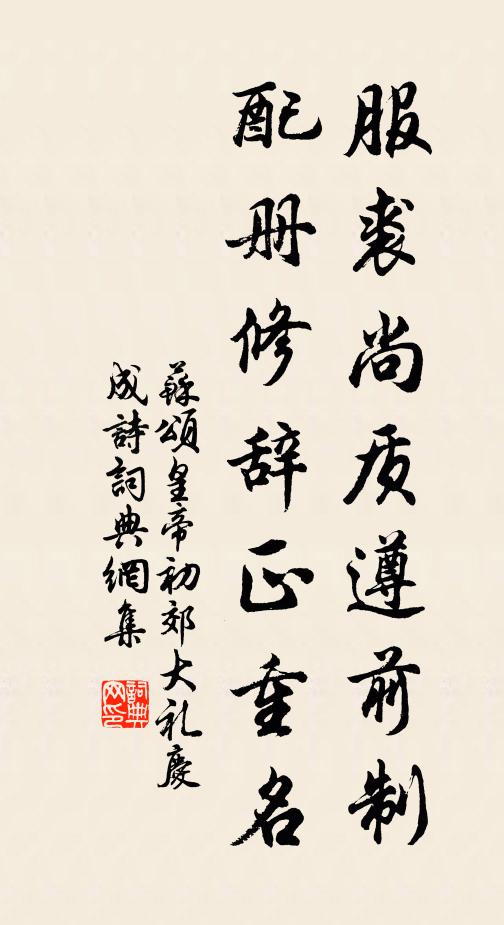 服裘尚质遵前制
配册修辞正重名
蘇頌皇帝初郊大礼慶
成詩詞典網集
詞典
网印